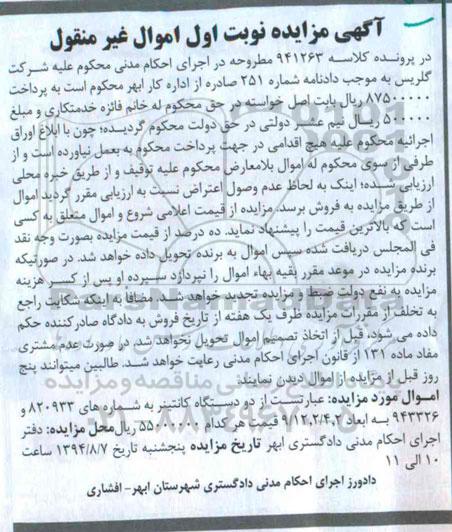 آگهی مزایده نوبت اول اموال غیر منقول
در پرونده کلاسه ۹۴۱۲۶۳ مطروحه در اجرای احکام مدنی محکوم علیه شرکت
گلریس به موجب دادنامه شماره ۲۵۱ صادره از اداره کار ابهر محکوم است به پرداخت
ریال بابت اصل خواسته در حق محکوم له خانم فائزه خدمتکاری و مبلغ
ریال نیم عشر دولتی در حق دولت محکوم گردیده؛ چون با ابلاغ اوراق
اجرائیه محکوم علیه هیچ اقدامی در جهت پرداخت محکوم به بعمل نیاورده است و از
طرفی از سوی محکوم له اموال بلامعارض محکوم علیه توقیف و از طریق خبره محلی
ارزیابی شده؛ اینک به لحاظ عدم وصول اعتراض نسبت به ارزیابی مقرر گردید اموال
از طریق مزایده به فروش برسد. مزایده از قیمت اعلامی شروع و اموال متعلق به کسی
است که بالاترین قیمت را پیشنهاد نماید. ده درصد از قیمت مزایده بصورت وجه نقد
فی المجلس دریافت شده سپس اموال به برنده تحویل داده خواهد شد. در صورتیکه
برنده مزایده در موعد مقرر بقیه بهاء اموال را نپردازد سپرده او پس از کسر هزینه
مزایده به نفع دولت ضبط و مزایده تجدید خواهد شد. مضافا به اینکه شکایت راجع
به تخلف از مقررات مزایده ظرف یک هفته از تاریخ فروش به دادگاه صادرکننده حکم
داده می شود، قبل از اتخاذ تصمیم اموال تحویل نخواهد شد. در صورت عدم مشتری
مفاد ماده ۱۳۱ از قانون اجرای احکام مدنی رعایت خواهد شد. طالبین میتوانند پنج
روز قبل از مزایده از اموال دیدن نمایند.
اموال مورد مزایده: عبارتست از دو دستگاه کانتینر به شماره های ۸۲۰۹۳۳ و
۹۴۳۳۲۶ به ابعاد ۱۲،۲/۴،۲ قیمت هر کدام ریال محل مزایده: دفتر
اجرای احکام مدنی دادگستری ابهر تاریخ مزایده پنجشنبه تاریخ ۱۳۹۴/۸/۷ ساعت
۱۰ الی ۱۱
دادورز اجرای احکام مدنی دادگستری شهرستان ابهر- افشاری